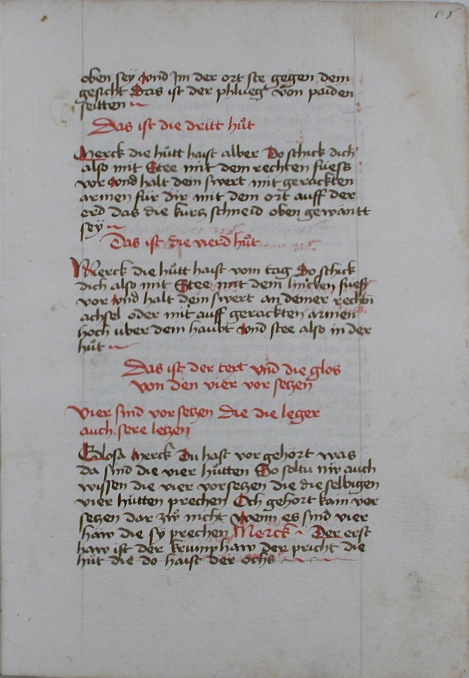 oben sey vnd Im der ort ste gegen dem
gesicht Das ist der phlueg von paiden
seitten
Das ist die dritt hůt
Merck die hůtt haist alber Do schick dich
also mit Stee mit dem rechten fuess
vor vnd halt dein swert mit gerackten
armen für dir mit dem ort auff der
erd das die kurtz schneid oben gewantt
sey
Das ist die vierd hůt
Merck die hůtt haist vom tag Do schick
dich also mit Stee mit dem lincken fuess
vor vnd halt dein swert an deiner rechtn
achsel oder mit auff gerackten armen
hoch vber dem haubt vnd stee also in der
hůt
Das ist der text vnd die glos
von den vier vor setzen
Vier sind vor setzen die die leger
auch sere letzen
Glosa Merck Du hast vor gehört was
da sind die vier hůtten So soltu nw auch
wissen die vier vorsetzen die die selbigen
vier hůtten prechen Och gehört kain ver
setzen dar zw nicht Wenn es sind vier
haw die sy prechen Merck Der erst
haw ist der krump haw der pricht die
hůt die do haist der ochs